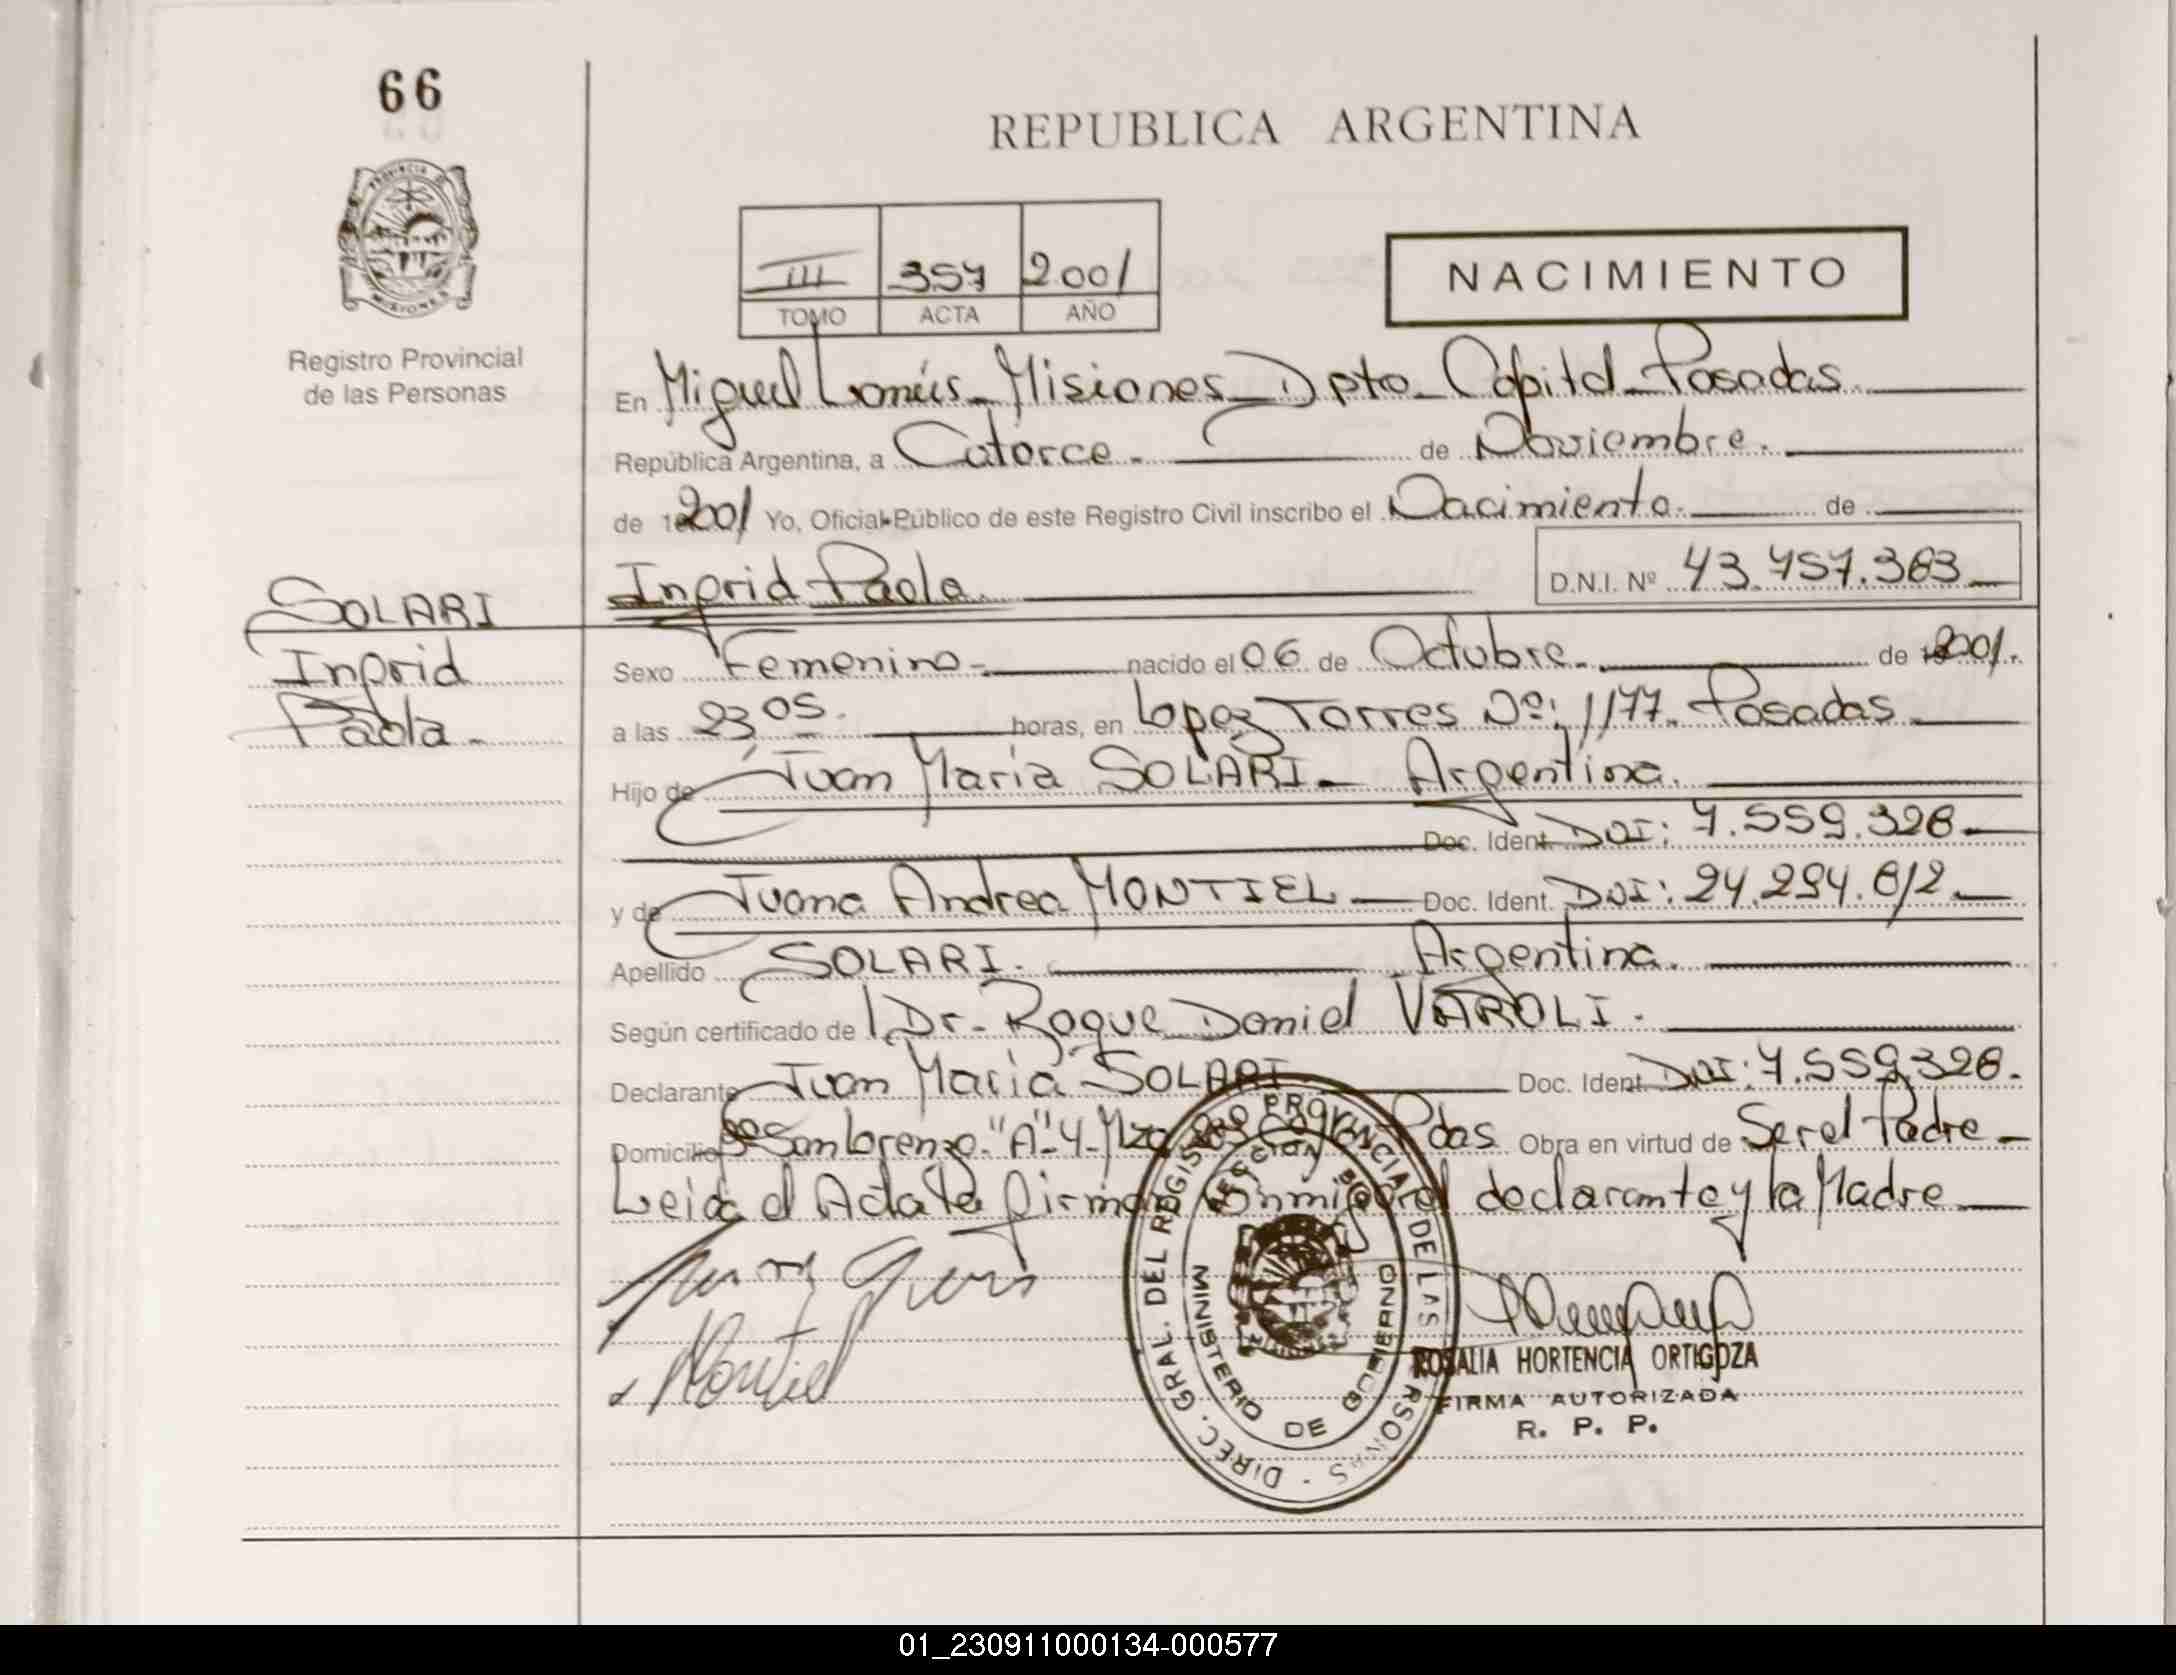 66
REPUBLICA ARGENTINA
PROVINCIA D
MISIONES
Registro Provincial
de las Personas
III 357 2001
TOMO ACTA AÑO
NACIMIENTO
En Miguel Lanús - Misiones - Dpto - Capital - Posadas
República Argentina, a Catorce - de Noviembre.
de 2001 Yo, Oficial Público de este Registro Civil inscribo el Nacimiento. de
Ingrid Paola. D.N.I. Nº 43.757.363
SOLARI
Ingrid
Paola -
Sexo Femenino - nacido el 06 de Octubre. de 2001.
a las 23 05. horas, en Lopez Torres Nº: 1177. Posadas
Hijo de Juan María SOLARI - Argentina.
Doc. Ident. DNI: 7.559.326
y de Juana Andrea MONTIEL Doc. Ident. DNI: 24.294.612
Apellido SOLARI. Argentina.
Según certificado de Dr - Roque Daniel VAROLI.
Declarante Juan María SOLARI Doc. Ident. DNI: 7.559.326.
Domicilio San Lorenzo "A" - 4 - Mza Pdas Obra en virtud de Ser el Padre -
Leida el Acta la firman conmigo el declarante y la Madre
Montiel
DIREC. GRAL. DEL REGISTRO PROVINCIAL DE LAS PERSONAS
MINISTERIO DE GOBIERNO
ROSALIA HORTENCIA ORTIGOZA
FIRMA AUTORIZADA
R. P. P.
01_230911000134-000577